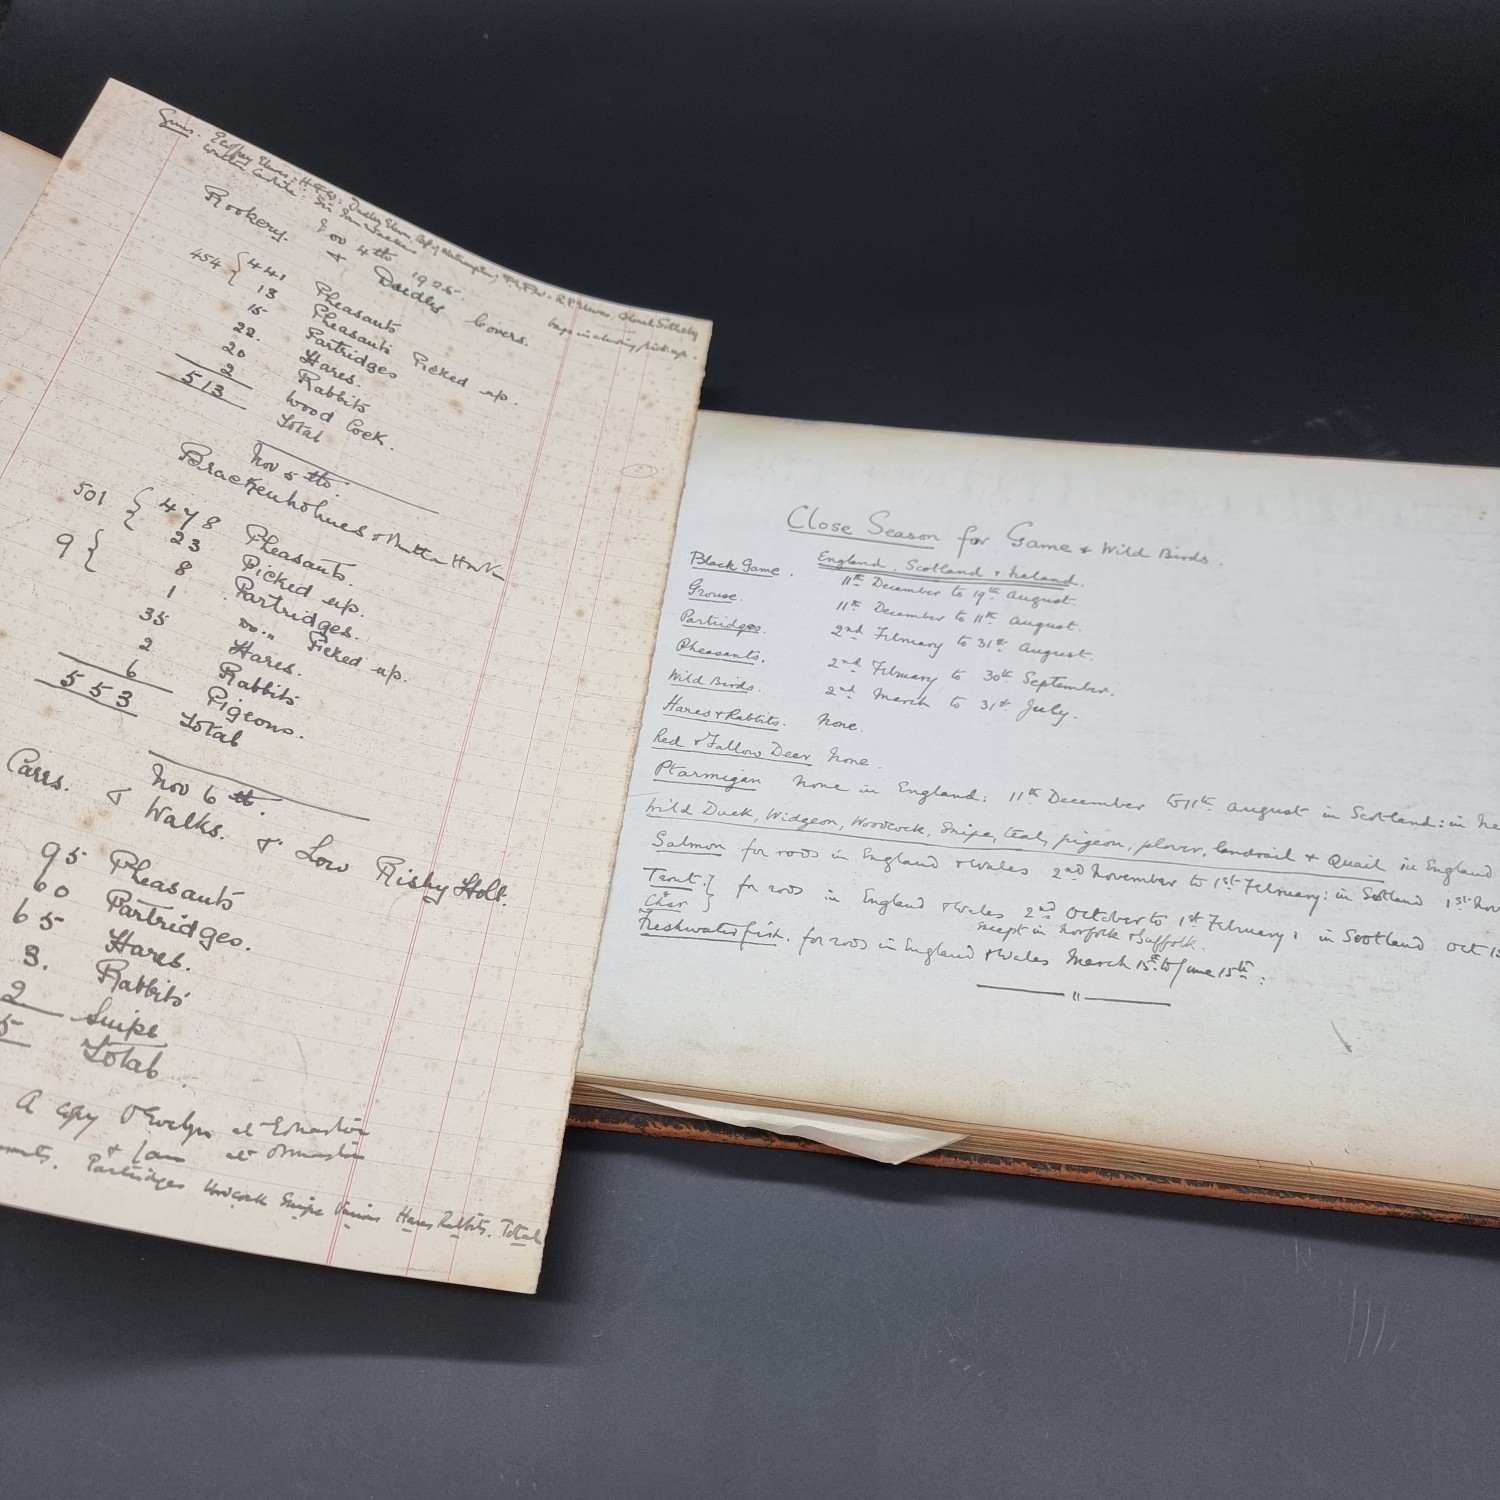 Guns.
Rookery.
Nov 4th 1925.
& Dardley Covers.
bags including pick up.
454 { 441 Pheasants
13 Pheasants Picked up.
15 Partridges
22. Hares.
20 Rabbits
2 Wood Cock.
513 Total
Nov 5th.
Brackenholmes &
501 { 478 Pheasants.
23 Picked up.
9 { 8 Partridges.
1 Do. " Picked up.
35 Hares.
2 Rabbits
6 Pigeons.
553 Total
Nov 6th.
Carrs. & Walks. & Low Risby Holt.
95 Pheasants
60 Partridges.
65 Hares.
3. Rabbits
2 Snipe
5 Total.
A copy
Partridges Woodcock Snipe Various Hares Rabbits. Total
Close Season for Game & Wild Birds.
England, Scotland & Ireland.
Black Game. 11th December to 19th August.
Grouse. 11th December to 11th August.
Partridges. 2nd February to 31st August.
Pheasants. 2nd February to 30th September.
Wild Birds. 2nd March to 31st July.
Hares & Rabbits. None.
Red & Fallow Deer None.
Ptarmigan None in England: 11th December to 11th August in Scotland: in
Wild Duck, Widgeon, Woodcock, Snipe, teal, pigeon, plover, landrail & Quail in England
Salmon for rods in England & Wales 2nd November to 1st February: in Scotland 1st Nov
Trout } for rods in England & Wales 2nd October to 1st February: in Scotland Oct 15
& Char } except in Norfolk & Suffolk.
Freshwater fish. for rods in England & Wales March 15th to June 15th: